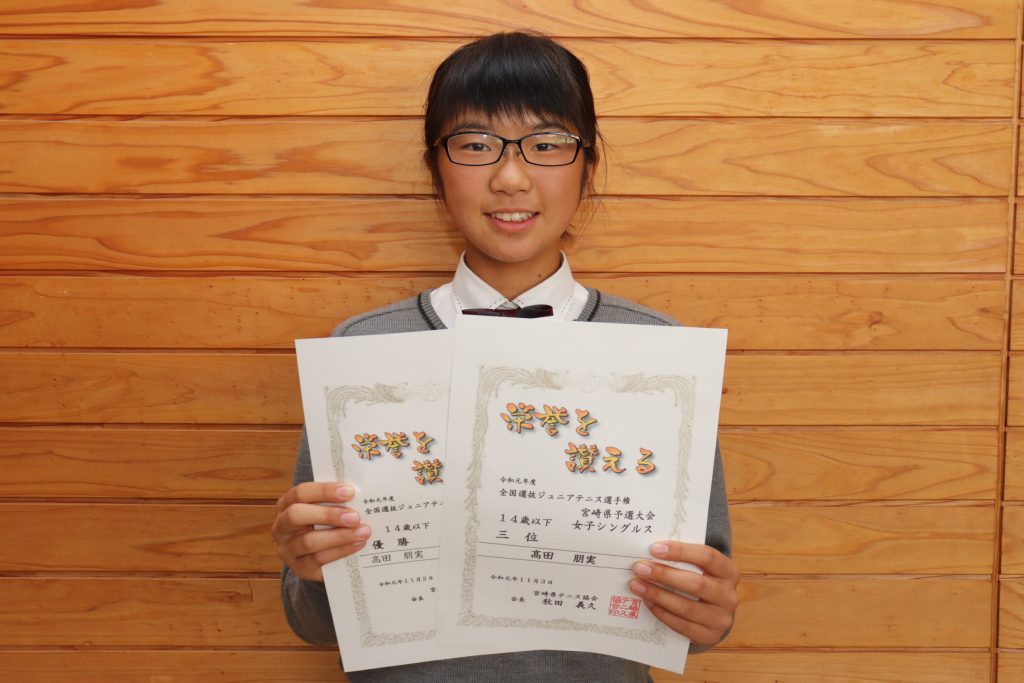 栄誉を
讃
令和元年度
全国選抜ジュニアテニ
14歳以下
優勝
高田 朋実
令和元年11月2
宮
会長
栄誉を
讃える
令和元年度
全国選抜ジュニアテニス選手権
宮崎県予選大会
14歳以下 女子シングルス
三位
高田 朋実
令和元年11月3日
宮崎県テニス協会
会長 秋田 義久